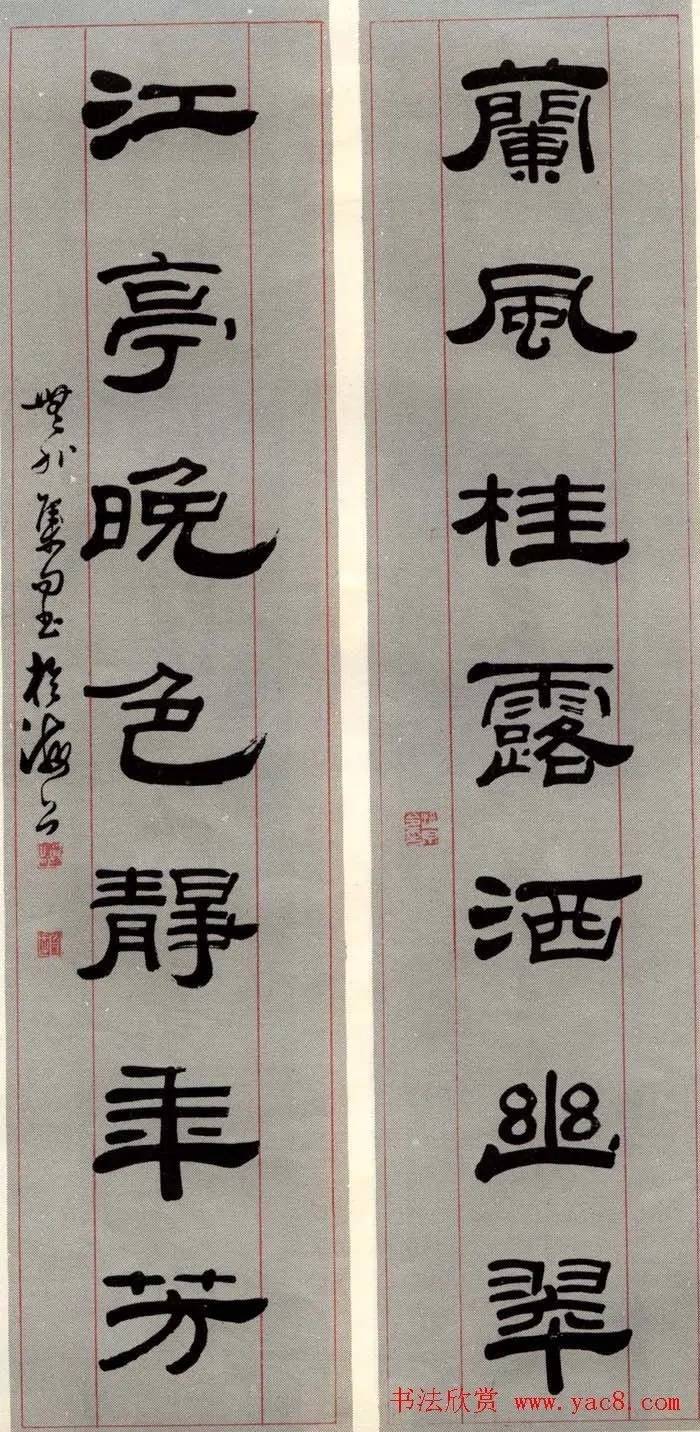 蘭風桂露洒幽翠
江亭晚色靜年芳
集句書於海上
书法欣赏 www.yac8.com